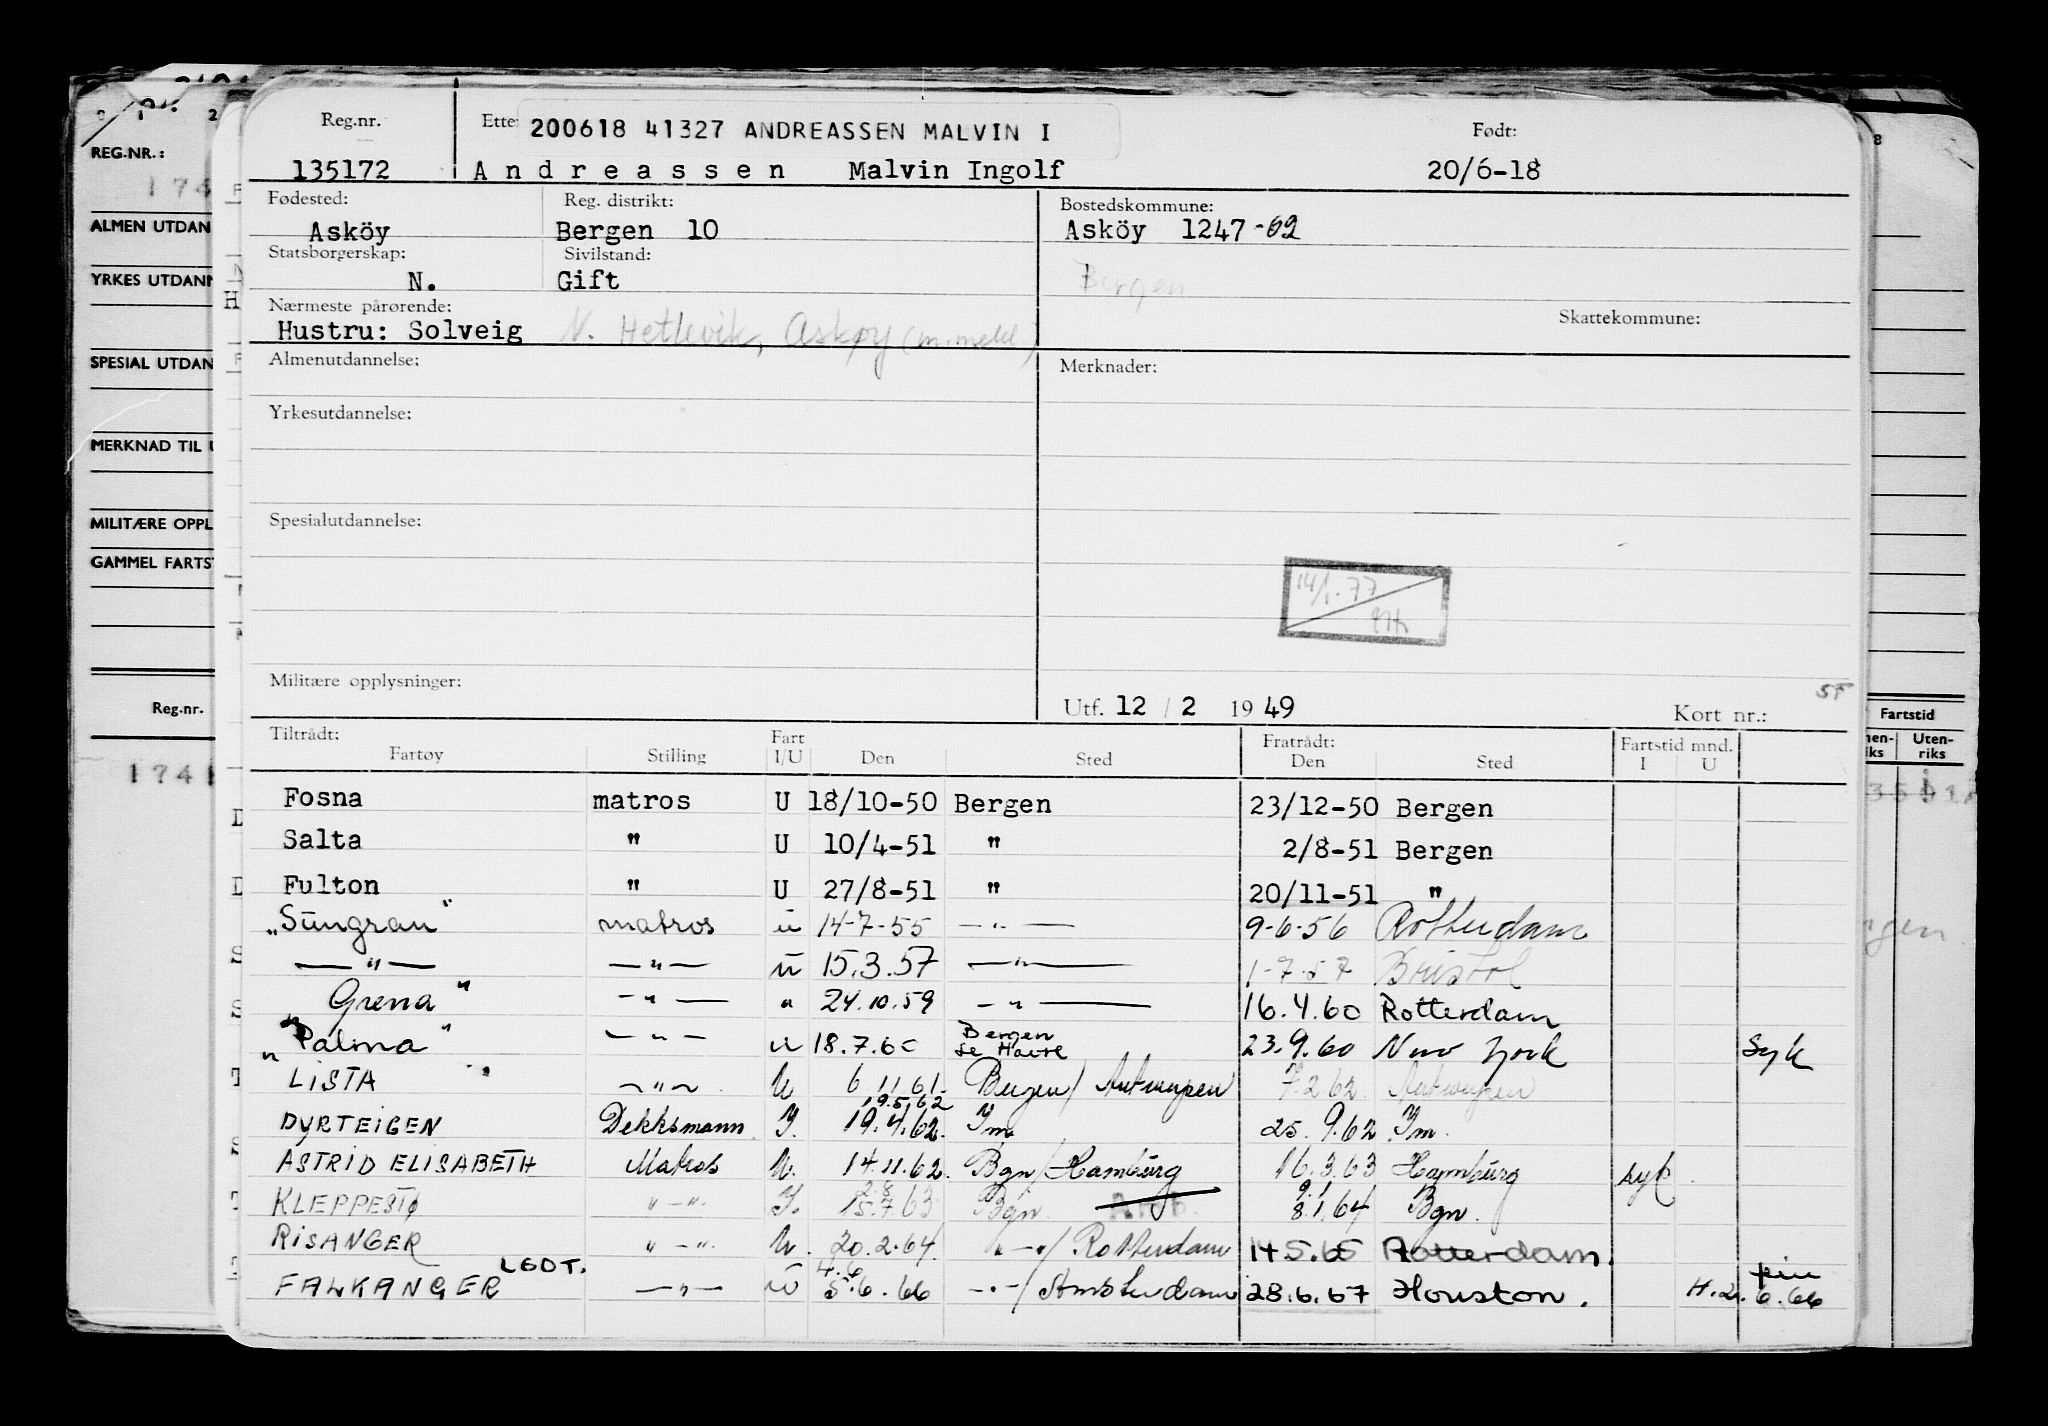 REG.NR.:
174
ALMEN UTDAN
YRKES UTDANN
SPESIAL UTDAN
MERKNAD TIL U
MILITÆRE OPPL
GAMMEL FARTST
Reg.nr.
174
Reg.nr. Ette: 200618 41327 ANDREASSEN MALVIN I Født:
135172 Andreassen Malvin Ingolf 20/6-18
Fødested: Reg. distrikt: Bostedskommune:
Asköy Bergen 10 Asköy 1247-62
Statsborgerskap: Sivilstand:
N. Gift Bergen
Nærmeste pårørende: Skattekommune:
Hustru: Solveig N. Hetlevik, Askøy (m.meld.)
Almenutdannelse: Merknader:
Yrkesutdannelse:
Spesialutdannelse:
14/1-77
Militære opplysninger:
Utf. 12 / 2 1949 Kort nr.: ST
Tiltrådt: Fart Fratrådt: Fartstid mnd.
Fartøy Stilling I/U Den Sted Den Sted I U
Fosna matros U 18/10-50 Bergen 23/12-50 Bergen
Salta " U 10/4-51 " 2/8-51 Bergen
Fulton " U 27/8-51 " 20/11-51 "
"Sungran" matros u 14-7-55 —"— 9-6-56 Rotterdam
—"— —"— u 15.3.57 —"— 1-7-57 Bristol
Grena" —"— " 24.10.59 —"— 16.4.60 Rotterdam
"Palma" —"— u 18.7.60 Bergen Le Havre 23.9.60 New York Syk
LISTA —"— U 6 11.61. Bergen/Antwerpen 7.2.62. Antwerpen
19.5.62
DYRTEIGEN Dekksmann I. 19.4.62. Im 25.9.62 Im.
ASTRID ELISABETH Matros U. 14.11.62. Bgn/Hamburg 16.3.63 Hamburg syk
2.8 9.1
KLEPPESTØ "-" I. 15.7.63 Bgn. 8.1.64 Bgn.
RISANGER "-" U. 20.2.64. "-"/Rotterdam 14.5.65 Rotterdam.
LEDT. 4.6
FALKANGER —"— U 5.6.66 —"—/Amsterdam 28.6.67 Houston. H.2.6.66
Fartstid
Uten-
riks